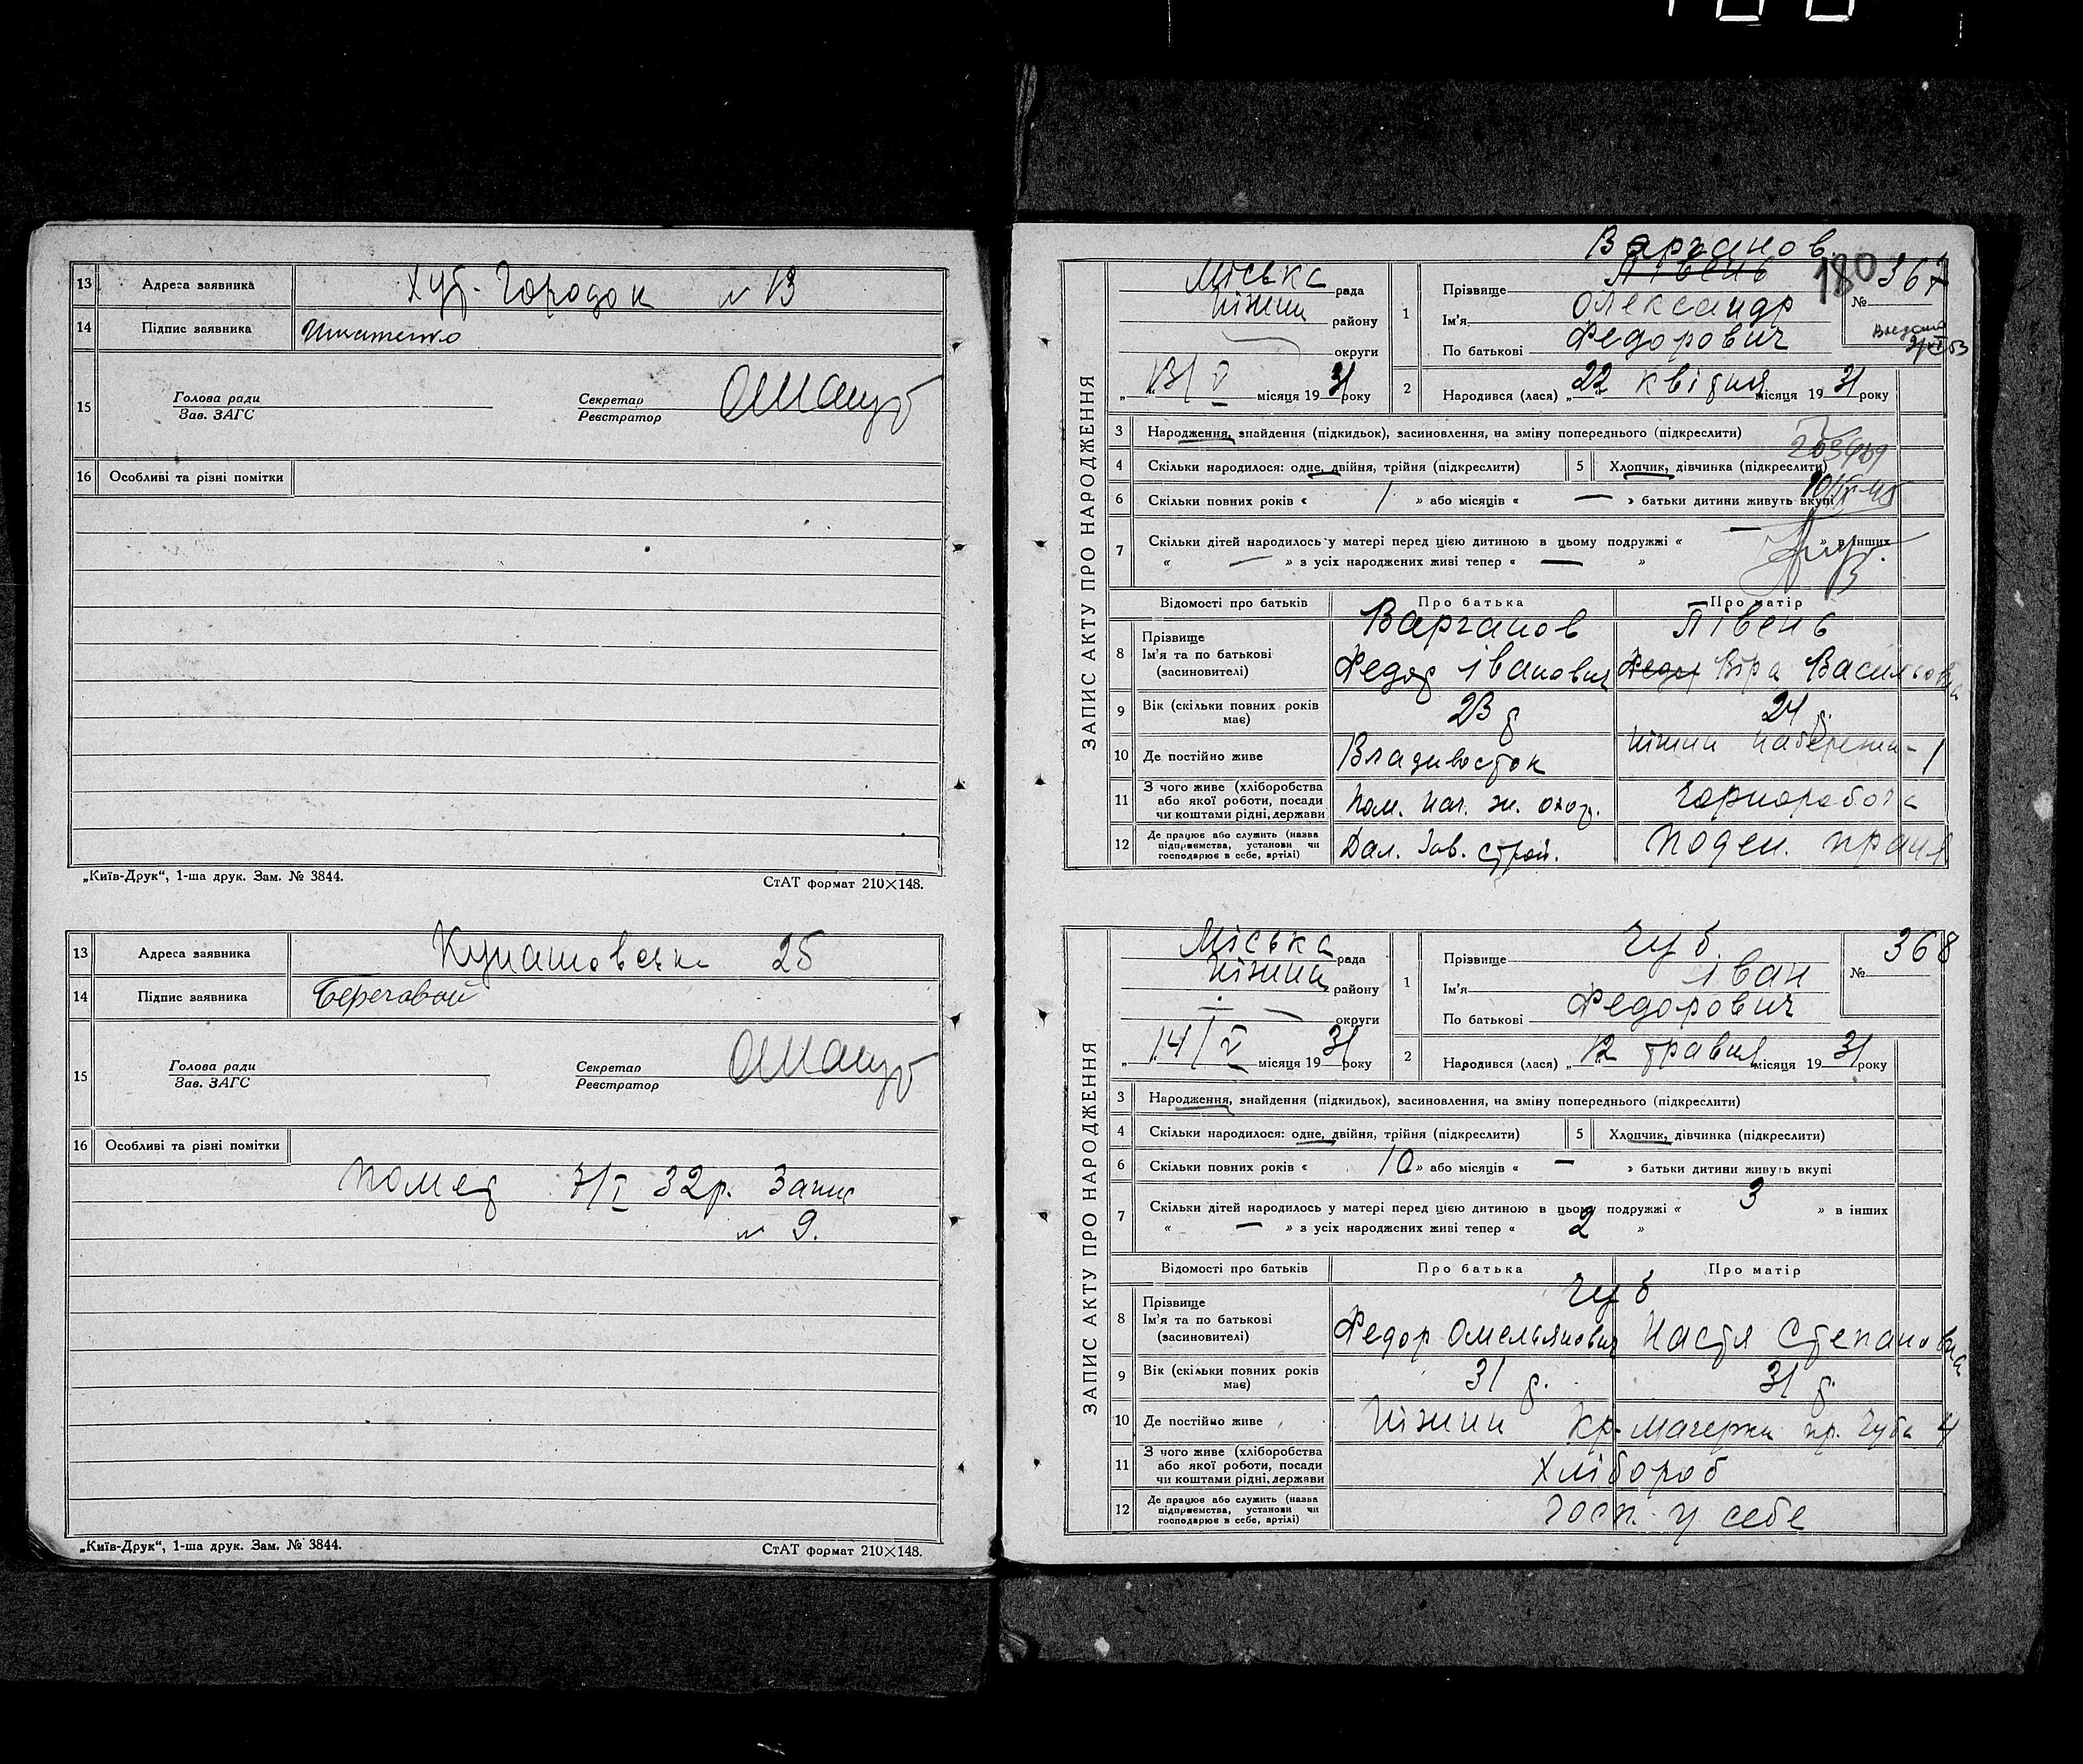 13 Адреса заявника Хут. Городок № 13
14 Підпис заявника Игнатенко
15 Голова ради
Зав. ЗАГС
Секретар
Реєстратор
16 Особливі та різні помітки
„Київ-Друк“, 1-ша друк. Зам. № 3844. СтАТ формат 210×148.
13 Адреса заявника Кунашовська 25
14 Підпис заявника Береговой
15 Голова ради
Зав. ЗАГС
Секретар
Реєстратор
16 Особливі та різні помітки
Помер 7/I 32р. Запис
№ 9.
„Київ-Друк“, 1-ша друк. Зам. № 3844. СтАТ формат 210×148.
ЗАПИС АКТУ ПРО НАРОДЖЕННЯ
Варганов
180
Міська рада
Ніжин району
округи
„13/V місяця 1931 року
1 Прізвище Півень
№ 367
Ім'я Олександр
По батькові Федорович
2 Народився (лася) „22 квітня місяця 1931 року
3 Народження, знайдення (підкидьок), засиновлення, на зміну попереднього (підкреслити)
4 Скільки народилося: одне, двійня, трійня (підкреслити) 5 Хлопчик, дівчинка (підкреслити)
6 Скільки повних років « 1 » або місяців « — » батьки дитини живуть вкупі
7 Скільки дітей народилось у матері перед цією дитиною в цьому подружжі « — » в інших
« — » з усіх народжених живі тепер « — »
Відомості про батьків Про батька Про матір
8 Прізвище
Ім'я та по батькові
(засиновителі)
Варганов Півень
Федор Іванович Віра Василівна
9 Вік (скільки повних років має) 23 р. 24 р.
10 Де постійно живе Владивосток Ніжин Набережн- 1
11 З чого живе (хліборобства або якої роботи, посади чи коштами рідні, держави Пом. нач. охор. Чорноробоча
12 Де працює або служить (назва підприємства, установи чи господарює в себе, артілі) Дал. Зав. Строй. Поден. праця
ЗАПИС АКТУ ПРО НАРОДЖЕННЯ
Міська рада
Ніжин району
округи
„14/V місяця 1931 року
1 Прізвище Чуб
№ 368
Ім'я Іван
По батькові Федорович
2 Народився (лася) „12 травня місяця 1931 року
3 Народження, знайдення (підкидьок), засиновлення, на зміну попереднього (підкреслити)
4 Скільки народилося: одне, двійня, трійня (підкреслити) 5 Хлопчик, дівчинка (підкреслити)
6 Скільки повних років « 10 » або місяців « — » батьки дитини живуть вкупі
7 Скільки дітей народилось у матері перед цією дитиною в цьому подружжі « 3 » в інших
« — » з усіх народжених живі тепер « 2 »
Відомості про батьків Про батька Про матір
8 Прізвище
Ім'я та по батькові
(засиновителі)
Чуб
Федор Омельянович Настя Степановна
9 Вік (скільки повних років має) 31 р. 31 р.
10 Де постійно живе Ніжин Кр-Магерки пр. Чуба 4
11 З чого живе (хліборобства або якої роботи, посади чи коштами рідні, держави Хлібороб
12 Де працює або служить (назва підприємства, установи чи господарює в себе, артілі) Госп. у себе